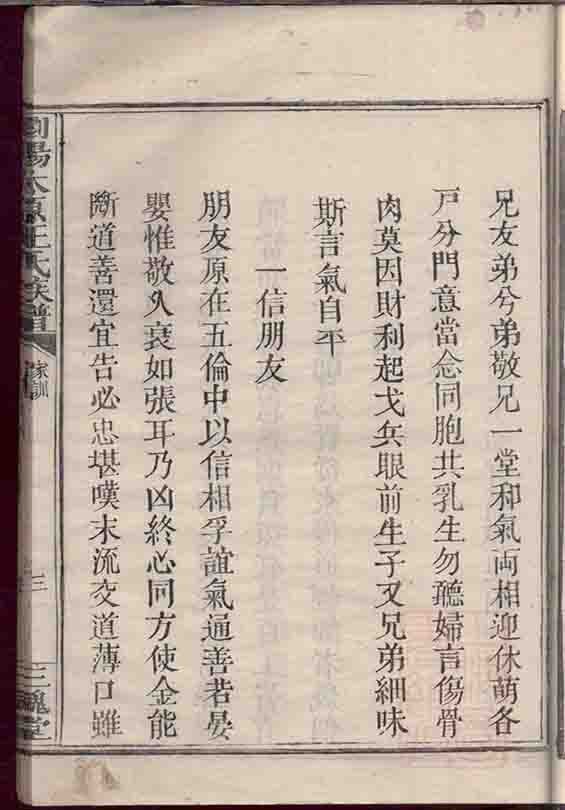 兄友弟兮弟敬兄一堂和氣両相迎休萌各
戸分門意當念同胞共乳生勿聽婦言傷骨
肉莫因財利起戈兵眼前生子又兄弟細味
斯言氣自平
一信朋友
朋友原在五倫中以信相孚誼氣通善若晏
嬰惟敬久衰如張耳乃凶終必同方使金能
斷道善還宜告必忠堪嘆末流交道薄口雖
瀏陽太原王氏族譜
家訓
三
三槐堂